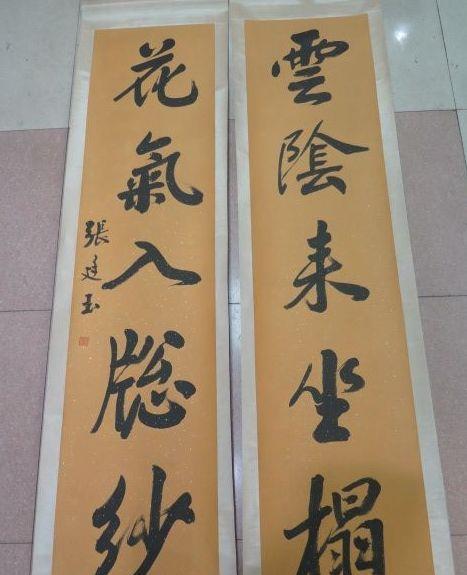 雲陰来坐榻
花氣入牕紗
張廷玉